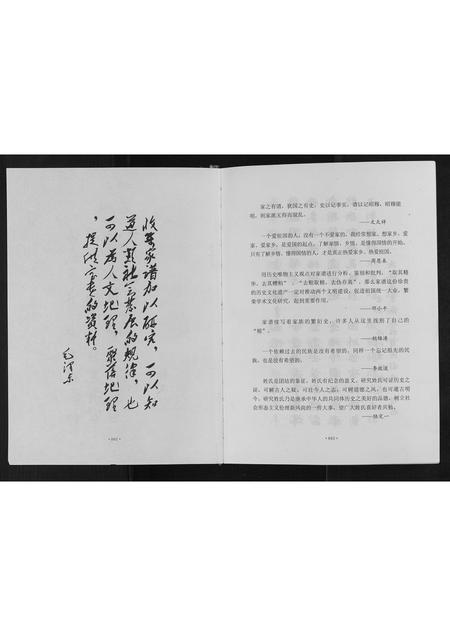 收集家谱加以研究，可以知
道人类社会发展的规律，也
可以为人文地理，聚落地理
，提供宝贵的资料。
毛泽东
· 002 ·
家之有谱，犹国之有史，史以记事实，谱以记昭穆，昭穆能
明，则家派又得而混乱。
——文天祥
一个爱祖国的人，没有一个不爱家的。我经常想家、想家乡，爱
家、爱家乡，是爱国的起点，了解家情、乡情，是懂得国情的开始，
只有了解乡情、懂得国情的人，才是真正热爱家乡、热爱祖国。
——周恩来
用历史唯物主义观点对家谱进行分析、鉴别和批判，“取其精
华，去其糟粕”、“去粗取精、去伪存真”，那么家谱这份珍贵
的历史文化遗产一定对推动两个文明建设，促进祖国统一大业，繁
荣学术文化研究，起到重要作用。
——邓小平
家谱续写着家族的繁衍史，许多人从这里找到了自己的
“根”。
——胡锦涛
一个依赖过去的民族是没有希望的，同样一个忘记祖先的民
族，也是没有希望的。
——李政道
姓氏是团结的象征，姓氏有纪念的意义，研究姓氏可证历史之
误，可解古人之疑，可壮今人之志，可树道德之风，也可通古明
今。研究姓氏乃是继承中华人的共同体历史之美好的品德，树立社
会形态主义伦理新风尚的一些大事，望广大姓氏喜好者共勉。
——陆定一
· 003 ·